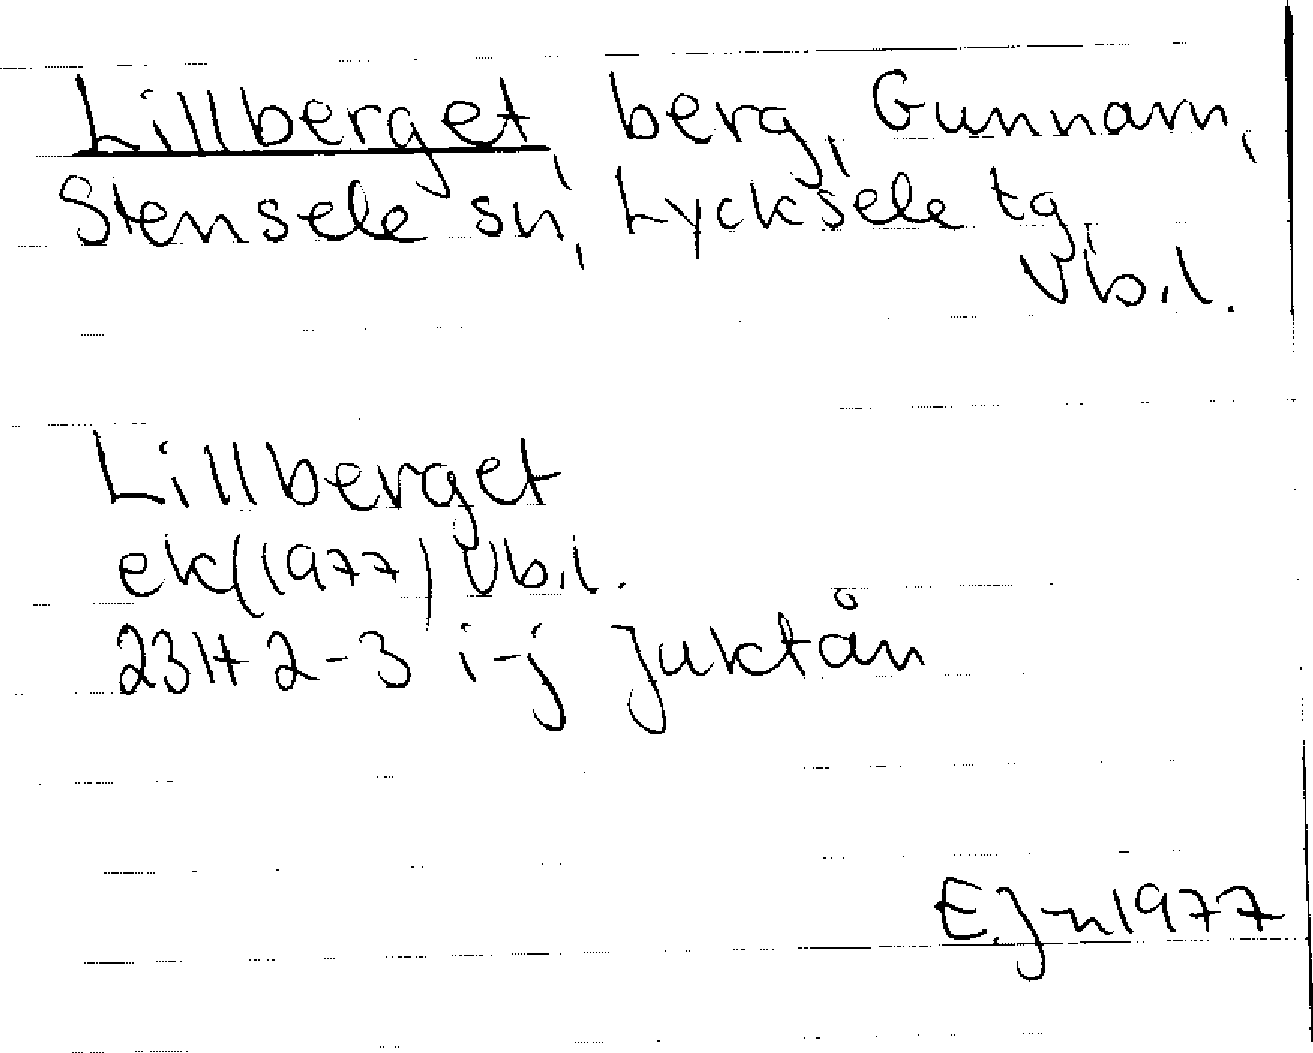 Lillberget, berg, Gunnarn,
Stensele sn, Lycksele tg,
Vb.l.
Lillberget
ek(1977) Vb.l.
23H 2-3 i-j Juktån
E.J-n 1977